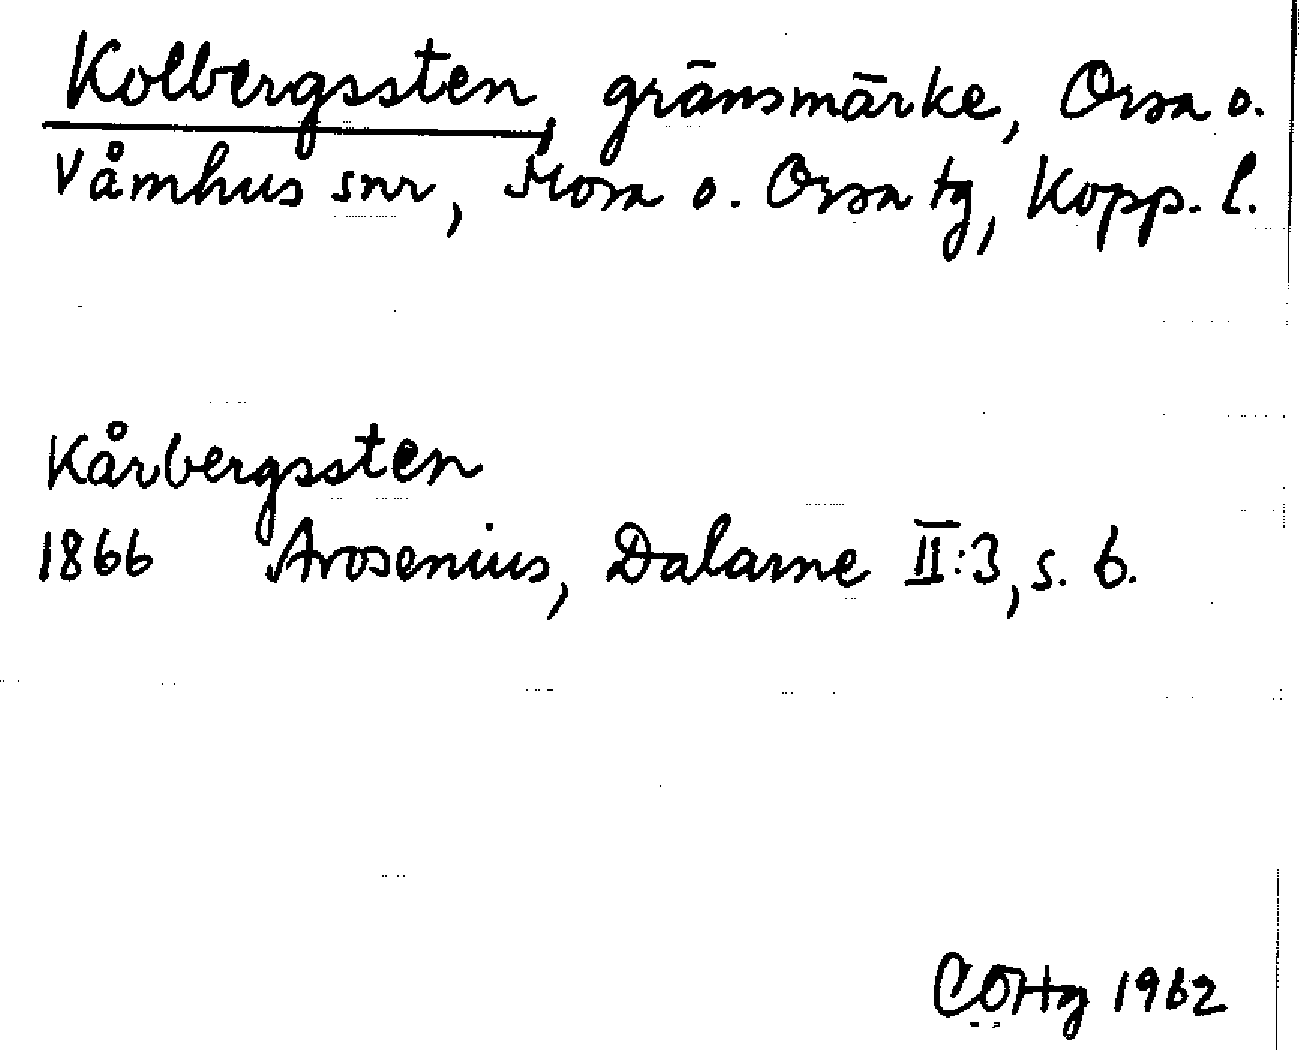 Kolbergssten, gränsmärke, Orsa o.
Våmhus snr, Mora o. Orsa tg, Kopp. l.
Kårbergssten
1866 Arosenius, Dalarne II:3, s. 6.
COHg 1962